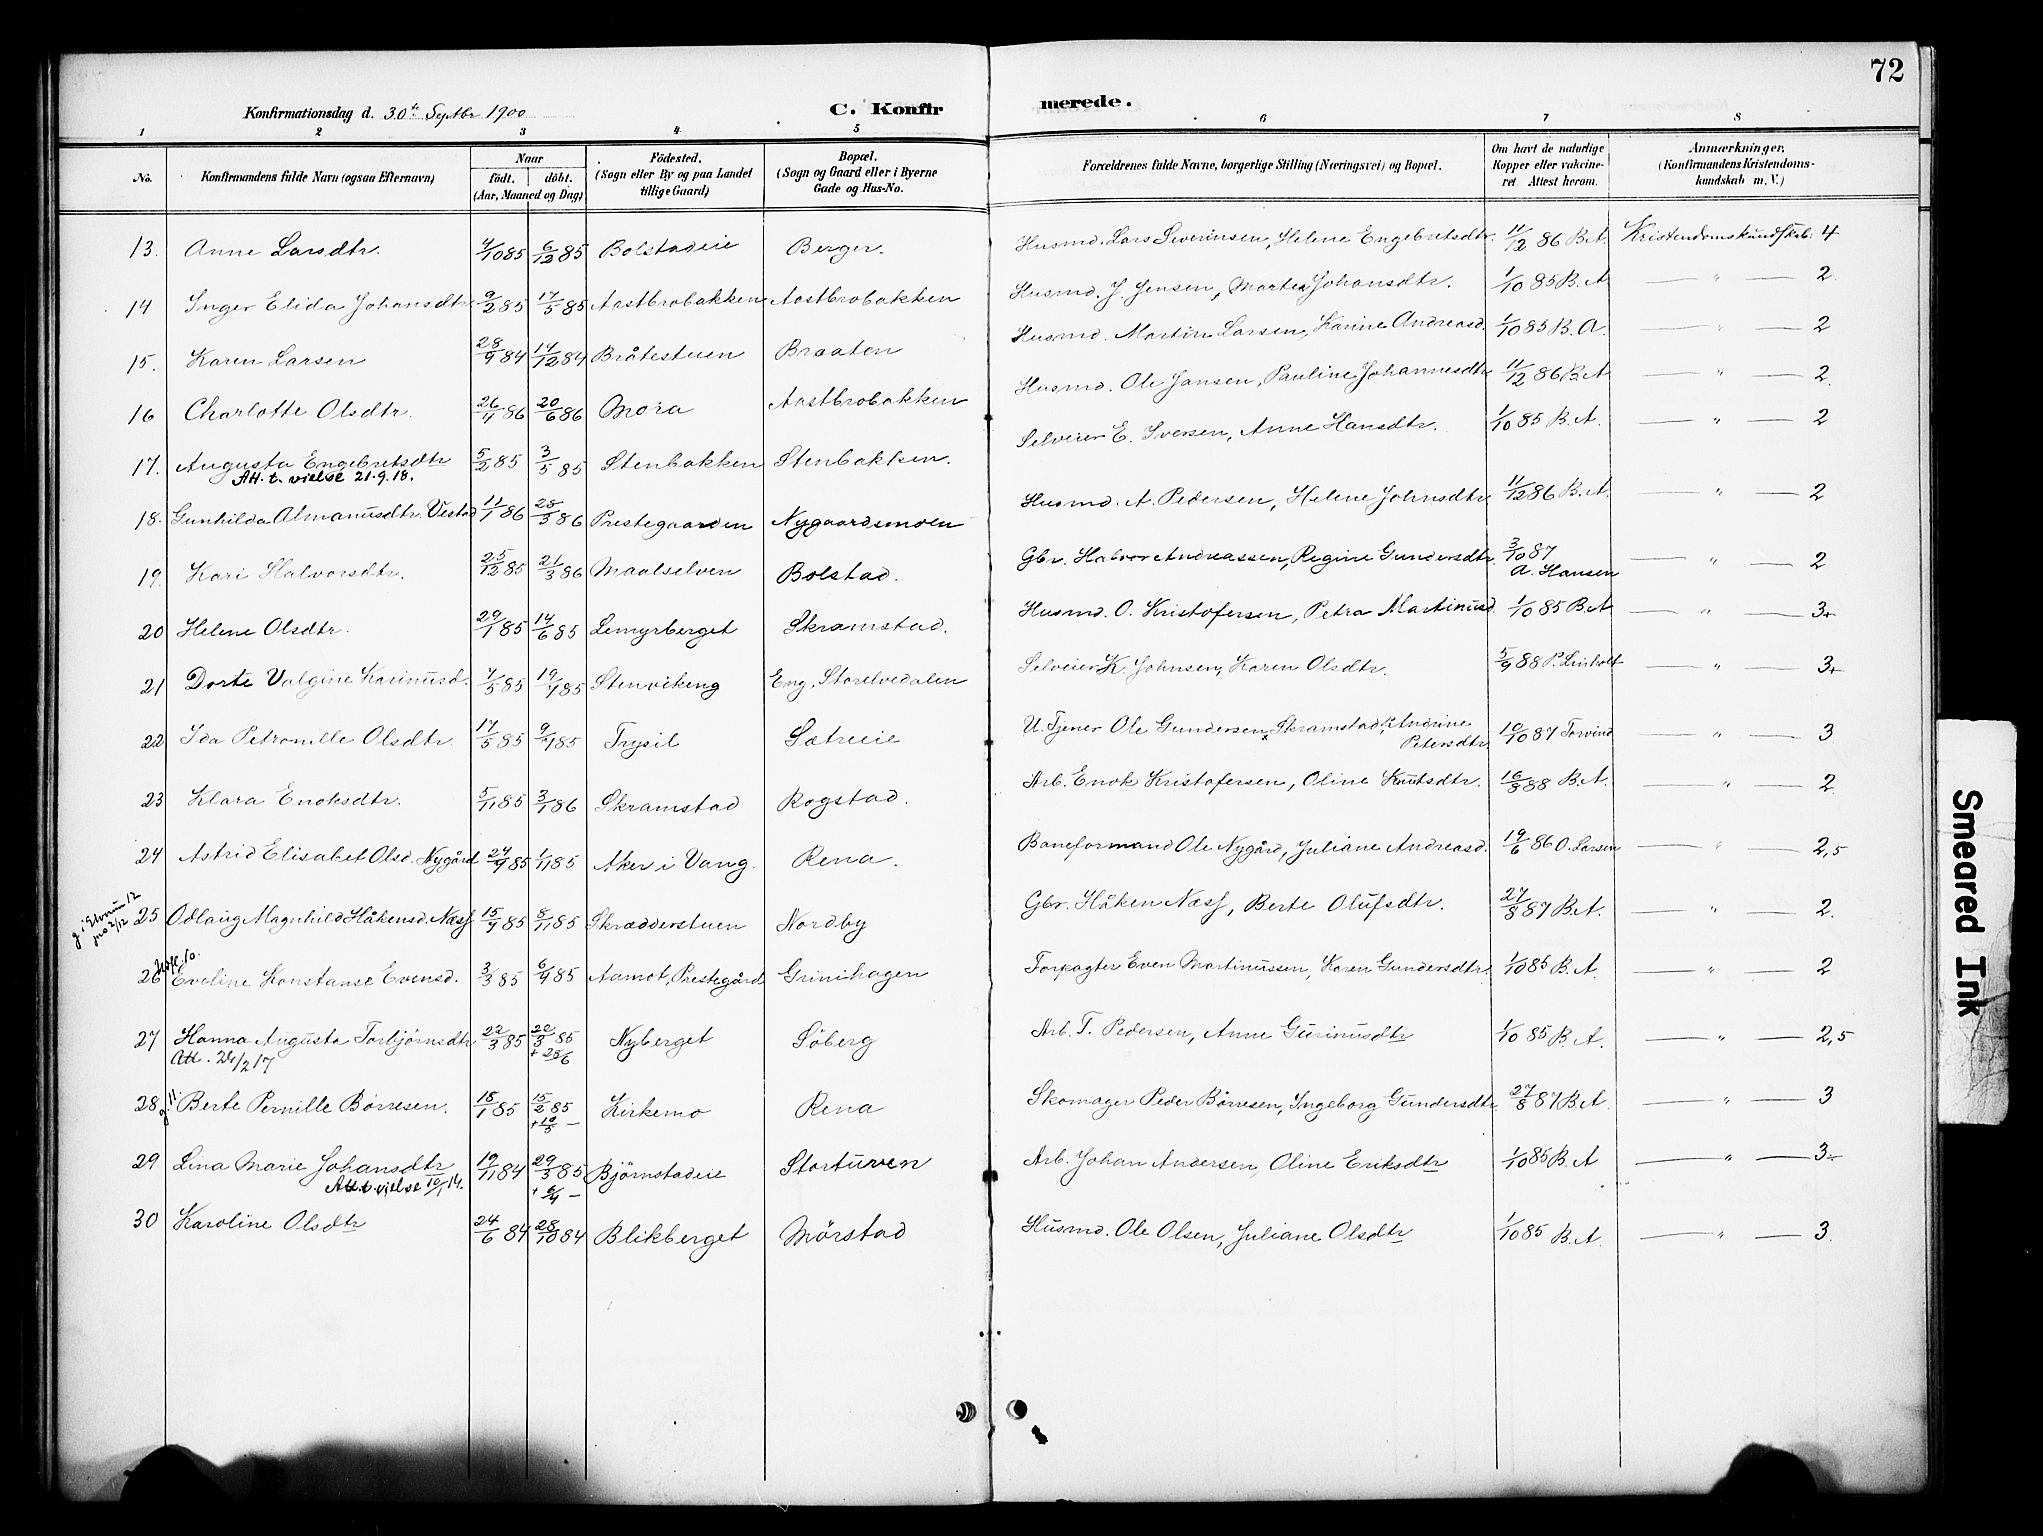 72
Konfirmationsdag d. 30te Septbr 1900 C. Konfirmerede.
1 2 3 4 5 6 7 8
No. Konfirmandens fulde Navn (ogsaa Efternavn) Naar födt. döbt. (Aar, Maaned og Dag) Födested. (Sogn eller By og paa Landet tillige Gaard) Bopæl. (Sogn og Gaard eller i Byerne Gade og Hus-No. Forældrenes fulde Navne, borgerlige Stilling (Næringsvei) og Bopæl. Om havt de naturlige Kopper eller vakcineret. Attest herom. Anmærkninger, (Konfirmandens Kristendomskundskab m. V.)
13. Anne Larsdtr. 4/10 85 6/12 85 Bolstadeie Berger. Husmd. Lars Severinsen, Helene Engebretsdtr. 11/12 86 B.A. Kristendomskundskab: 4
14 Inger Elida Johansdtr. 9/2 85 17/5 85 Aastbrobakken Aastbrobakken Husmd. J. Jensen, Martea Johansdtr. 1/10 85 B.A — " — 2
15. Karen Larsen 28/9 84 14/12 84 Bråtestuen Braaten Husmd. Martin Larsen, Karine Andreasd. 1/10 85 B.A. — " — 2
16 Charlotte Olsdtr. 26/4 86 20/6 86 Mora Aastbrobakken Husmd. Ole Jansen, Pauline Johannesdtr. 11/12 86 B.A — " — 2.
17. Augusta Engebretsdtr 5/2 85 3/5 85 Stenbakken Stenbakken. Selveier E. Iversen, Anne Hansdtr. 1/10 85 B.A. — " — 2
Att. t. vielse 21.9.18.
18. Gunhilda Almanusdtr. Vestad 11/1 86 28/3 86 Prestegaarden Nygaardsmoen Husmd. A. Pedersen, Helene Johnsdtr. 11/12 86 B.A. — " — 2
19. Kari Halvorsdtr. 25/12 85 21/3 86 Maalselven Bolstad. Gbr. Halvor Andreassen, Regine Gundersdtr. 3/10 87 A. Hansen — " — 2
20 Helene Olsdtr. 29/1 85 14/6 85 Lemyrberget Skramstad. Husmd. O. Kristofersen, Petra Martinusd. 1/10 85 B.A — " — 3÷
21 Dorte Valgine Karinusd. 7/5 85 19/7 85 Stenvikeng Eng, Storelvedalen Selveier K. Johnsen, Karen Olsdtr. 5/9 88 P. Linholt — " — 3÷
22 Ida Petronille Olsdtr. 17/5 85 Trysil Sætreeie U. Tjener Ole Gundersen Skramstad, Andrine Petersdtr. 10/10 87 Torvind — " — 3
23 Klara Enoksdtr. 5/11 85 3/1 86 Skramstad Rogstad. Arb. Enok Kristofersen, Oline Knutsdtr. 16/8 88 B.A. — " — 2
24 Astrid Elisabet Olsd. Nygård 24/9 85 1/11 85 Aker i Vang. Rena. Baneformand Ole Nygård, Juliane Andreasd. 19/6 86 O. Larsen — " — 2,5
25 Odlaug Magnhild Håkensd. Næss 15/9 85 8/11 85 Skrædderstuen Nordby Gbr. Håken Næss, Berte Olufsdtr. 27/8 87 B.A. — " — 2.
26 Eveline Konstanse Evensd. 3/3 85 6/9 85 Aamot, Prestegård Grinihagen Forpagter Even Martinussen, Karen Gundersdtr. 1/10 85 B.A. — " — 2
27 Hanna Augusta Torbjørnsdtr 22/3 85 22/3 85 + 25/6 Nyberget Söberg Arb. T. Pedersen, Anne Gurinusdtr 1/10 85 B.A. — " — 2,5
Att. 24/2 17
28 Berte Pernille Börresen. 18/1 85 15/2 85 + 10/5 — Kirkemo Rena Skomager Peder Börresen, Ingeborg Gundersdtr 27/8 87 B.A. — " — 3
29 Lina Marie Johansdtr 19/11 84 29/3 85 + 6/4 — Björnstadeie Stortuven Arb. Johan Andersen, Oline Eriksdtr 1/10 85 B.A — " — 3÷
Att. t. vielse 10/1 14.
30 Karoline Olsdtr 24/6 84 28/10 84 Blikberget Mörstad Husmd. Ole Olsen, Juliane Olsdtr 1/10 85 B.A. — " — 3.
Smeared Ink